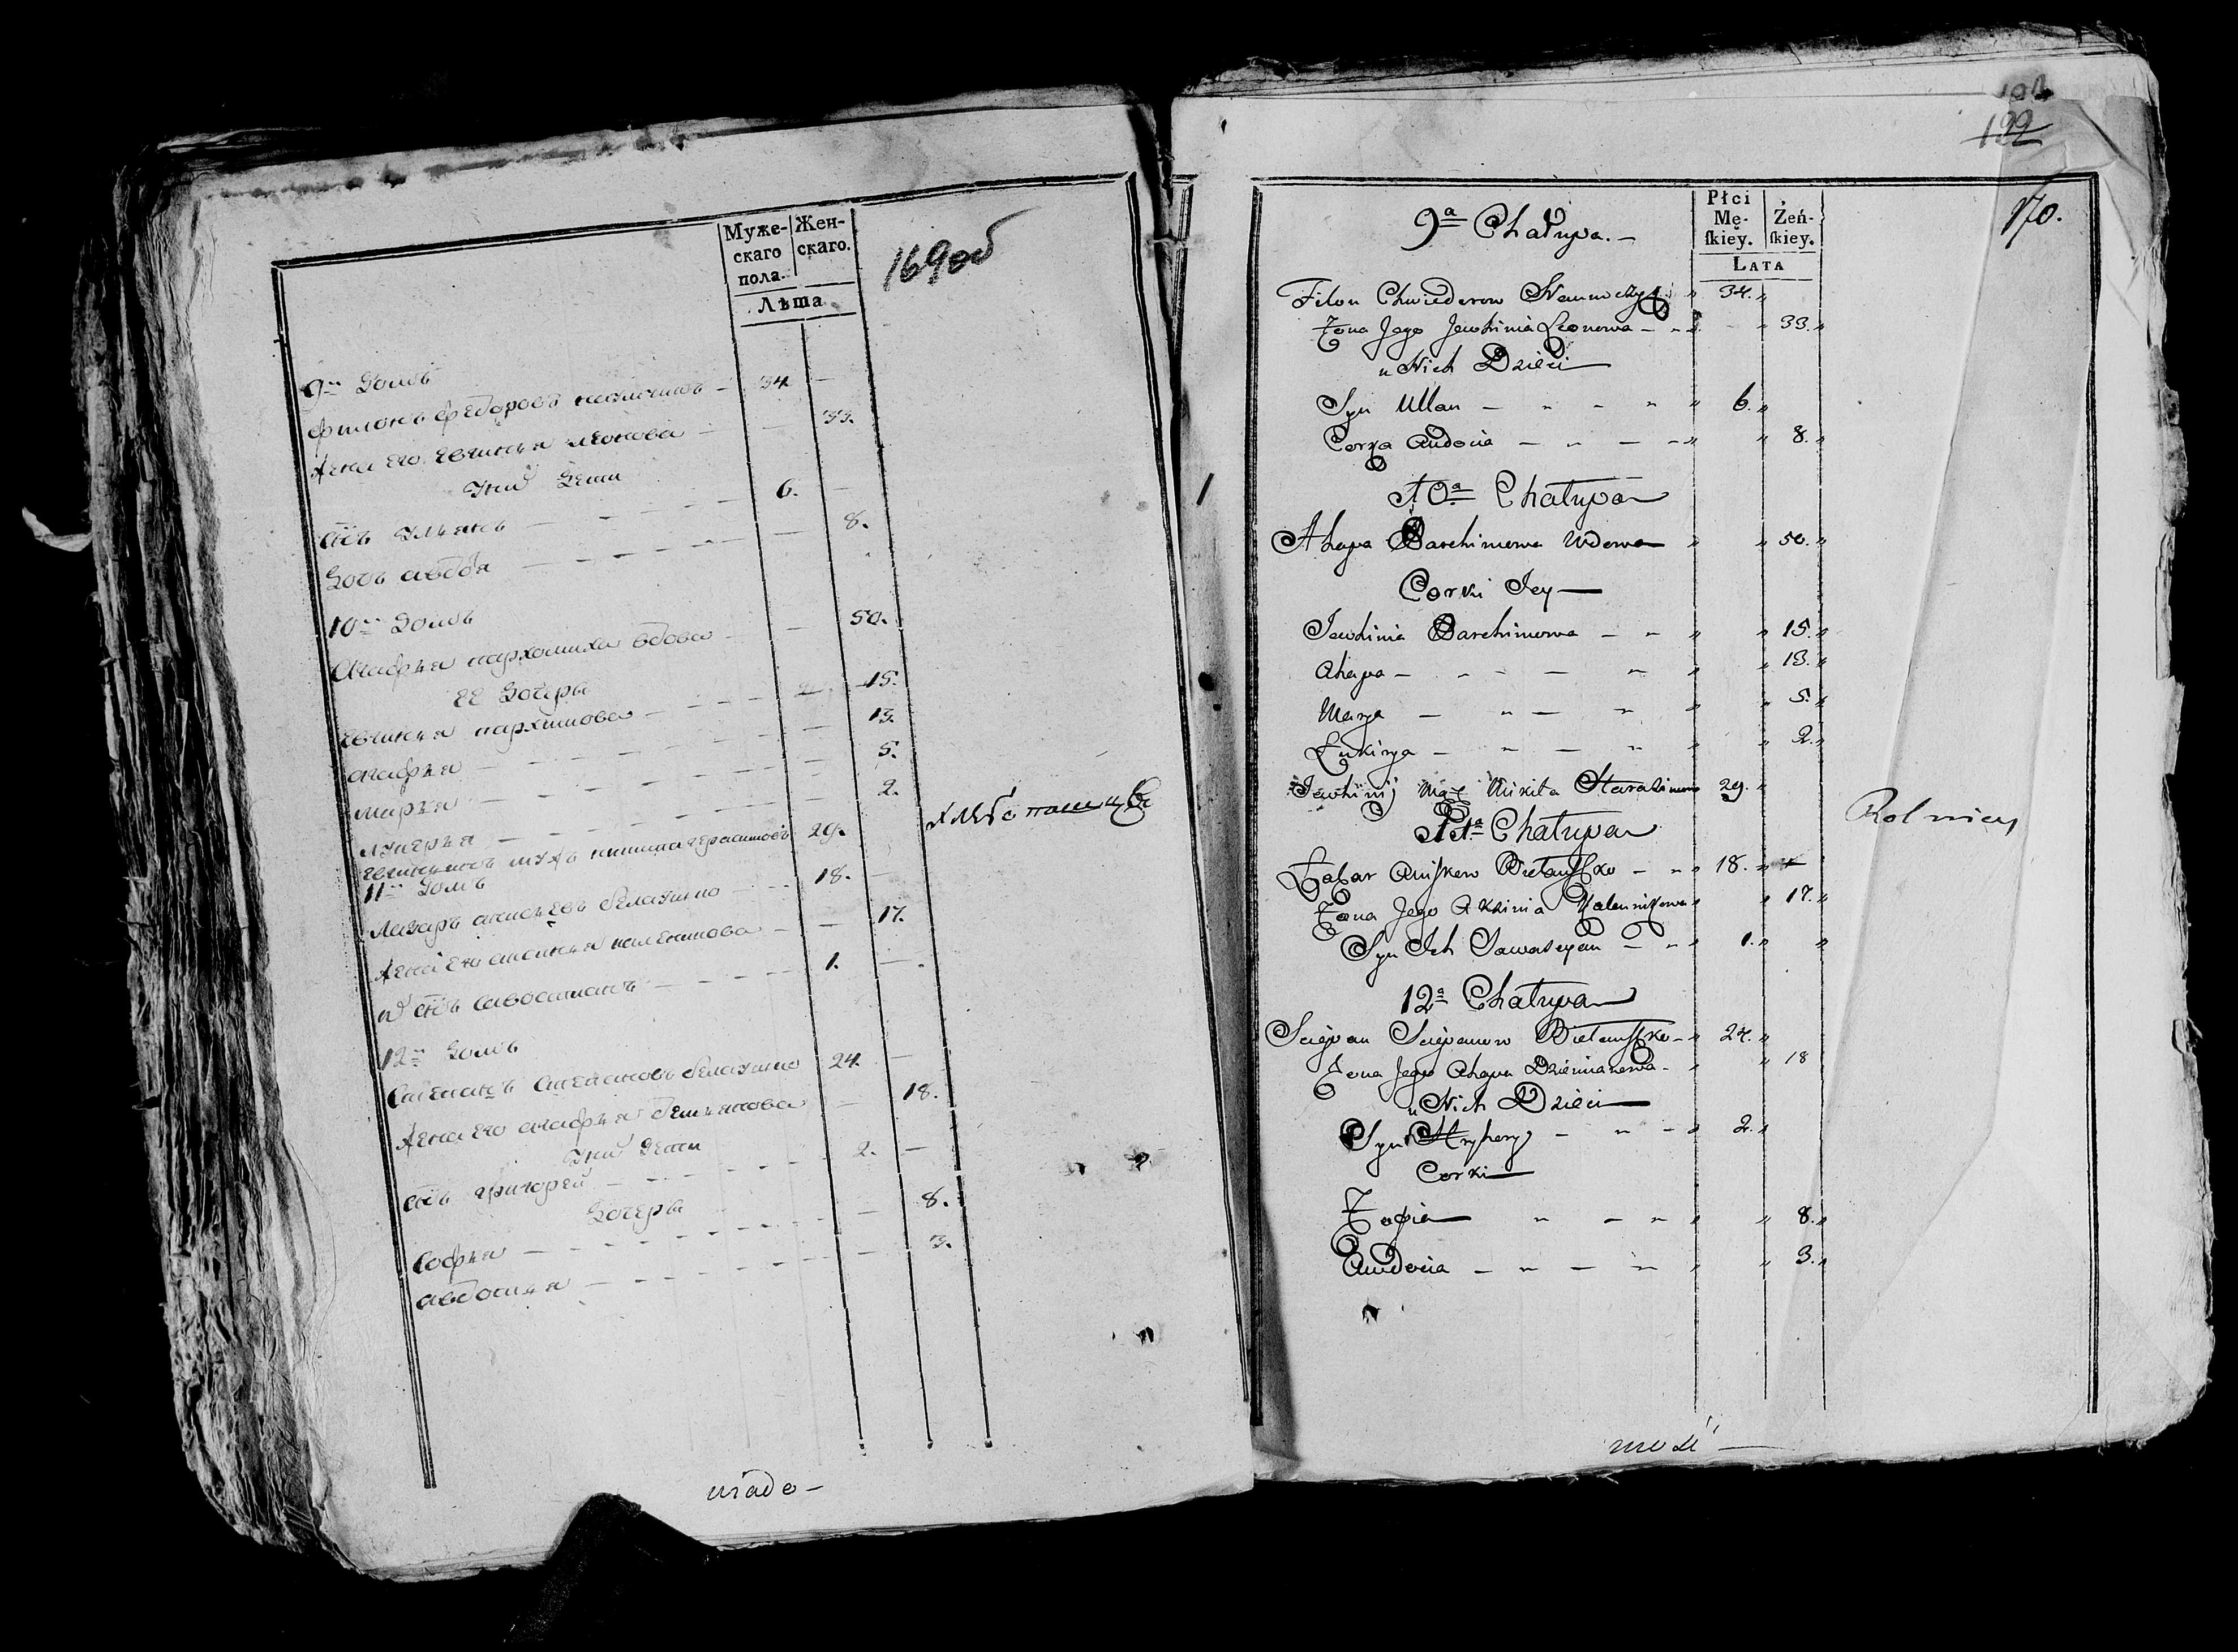 Муже-
скаго
пола.
Жен-
скаго.
Лѣта
169 об
9й домъ
Филонъ Федоровъ — 34 —
Жена его Евгинья Леонова — — 33.
У них дети
Сынъ Ульянъ — — — 6. —
Дочь Авдотя — — — 8.
10й домъ
Агафья Пархомиха вдова — — 50.
ее дочери
Евгинья Пархимова — — 15.
Агафья — — — 13.
Марья — — — 5.
Лукерья — — — 2.
Евгиньинъ мужъ Никита Герасимовъ 29. —
хлебопашцы
11й домъ
Лазарь Анисьевъ Белаушко — 18. —
Жена его Калеником — 17.
и сынъ Савостианъ — — 1. —
12й домъ
Степанъ Степановъ Белаушко 24. —
Жена его Агафья Демьянова — 18.
У них дети
Сынъ Григорей — — 2. —
Дочери
Софья — — — — 8.
Авдотья — — — — 3.
192
170.
Płci
Mę-
ſkiey.
Żeń-
ſkiey.
Lata
9a Chałupa. —
Filon Chwiederow „ 34. „
Żona Jego Jewhinia Leonowa — „ 33. „
u Nich Dzieci
Syn Ullan — „ — „ „ 6. „
Corka Audocia — „ — „ „ 8. „
10a Chałupa
Ahapa Parchimowa Wdowa „ „ 50. „
Corki Jey —
Jewhinia Parchimowa — „ „ „ 15. „
Ahapa — — „ „ 13. „
Marya — „ — „ „ 5. „
Łukirya — „ — „ „ 2. „
Jewhinij Mąż Mikita Harasimow 29. „
Rolnicy
11a Chałupa
Łazar Aniſkow Biełauſzko — „ 18. „
Żona Jego Kalennikowa „ „ 17. „
Syn Ich Sawastyan — „ 1. „ „
12a Chałupa
Sciepan Sciepanow Biełauſzko — „ 24. „
Żona Jego Ahapa Dziemianowa — „ „ 18
u Nich Dzieci
Syn Hryhory — „ — „ 2. „
Corki
Zofia „ — „ „ „ 8. „
Audocia — „ — „ „ „ 3. „